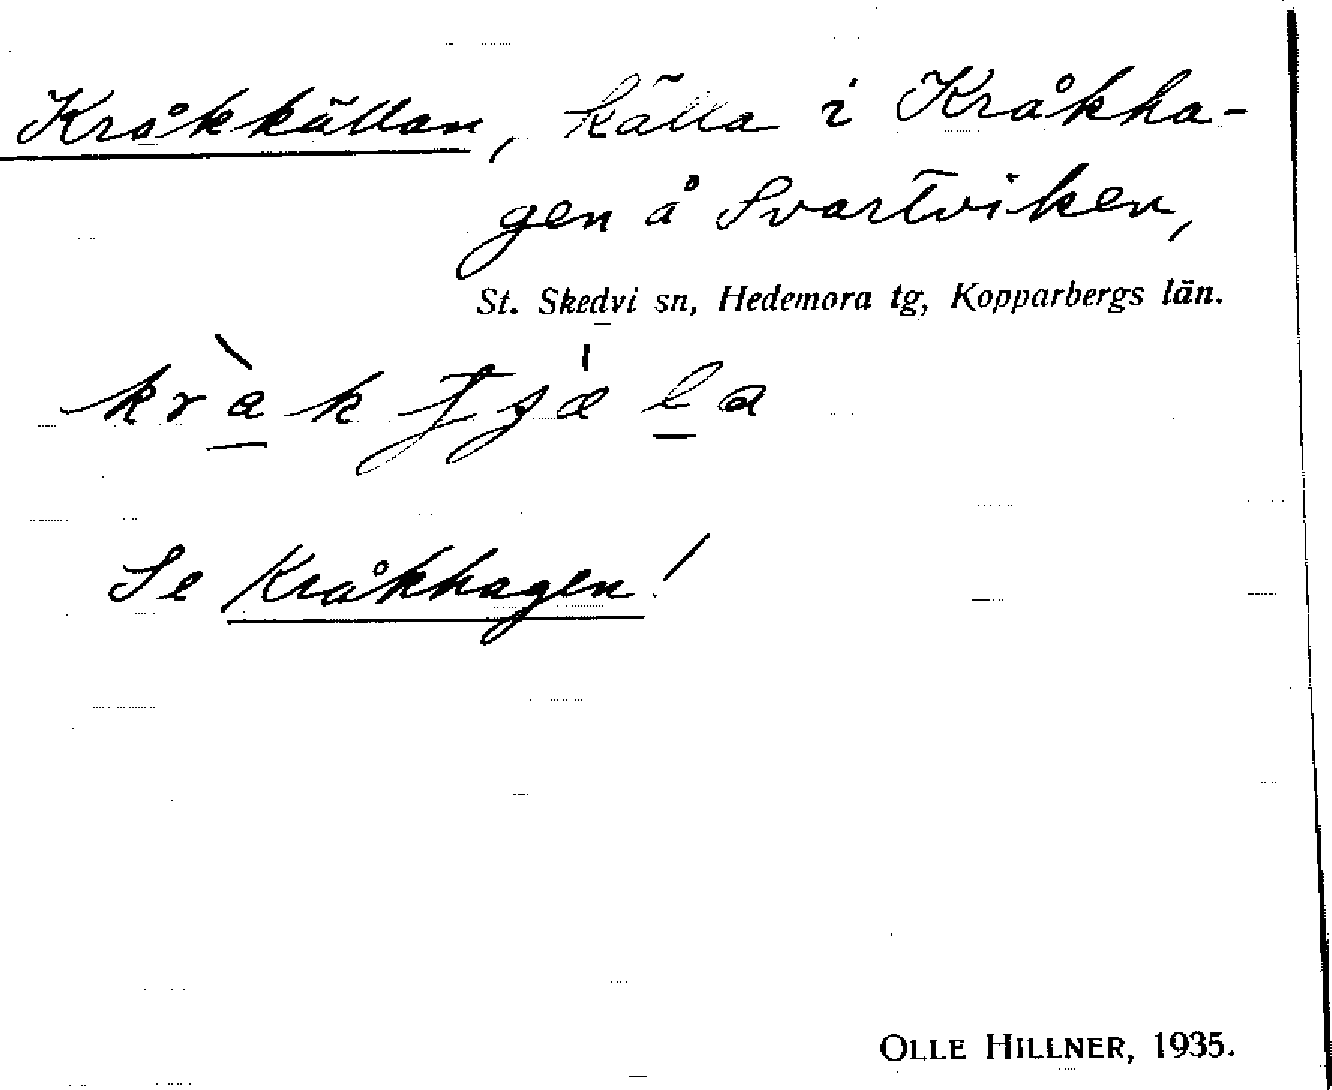 Kråkkällan, källa i Kråkha-
gen å Svartviken,
St. Skedvi sn, Hedemora tg, Kopparbergs län.
Se Kråkhagen!
OLLE HILLNER, 1935.